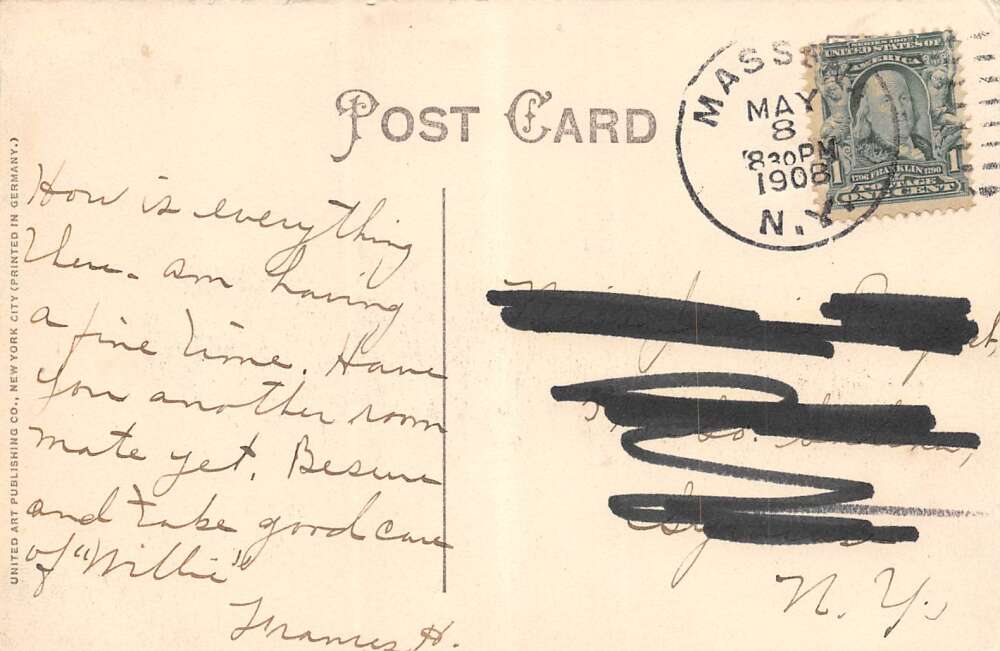 POST CARD
MASS
MAY
8
830PM
1908
N.Y.
SERIES 1902
UNITED STATES OF
AMERICA
1706 FRANKLIN 1790
POSTAGE
1 1
ONE CENT
UNITED ART PUBLISHING CO., NEW YORK CITY (PRINTED IN GERMANY.)
How is everything
there - am having
a fine time. Have
you another room
mate yet. Besure
and take good care
of "Willie"
Frances H.
So.
N. Y.